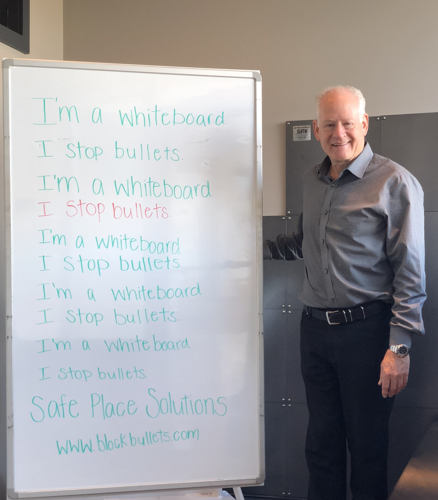 I'm a whiteboard
I stop bullets.
I'm a whiteboard
I stop bullets.
I'm a whiteboard
I stop bullets
I'm a whiteboard
I stop bullets.
I'm a whiteboard
I stop bullets.
Safe Place Solutions
www.blockbullets.com